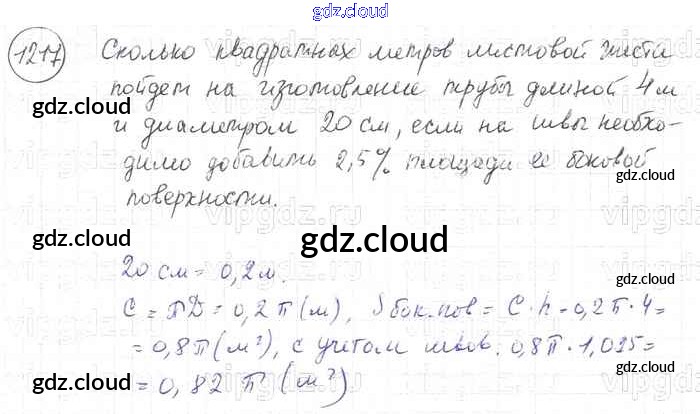 gdz.cloud
1217 Сколько квадратных метров листовой жести
пойдет на изготовление трубы длиной 4 м
gdz.cloud gdz.cloud
и диаметром 20 см, если на швы необхо-
димо добавить 2,5% площади ее боковой
gdz.cloud
поверхности.
gdz.cloud gdz.cloud
20 см = 0,2 м.
C = πD = 0,2π (м), Sбок.пов = C · h = 0,2π · 4 =
= 0,8π (м²), с учетом швов: 0,8π · 1,025 =
gdz.cloud gdz.cloud
= 0,82 π (м²)